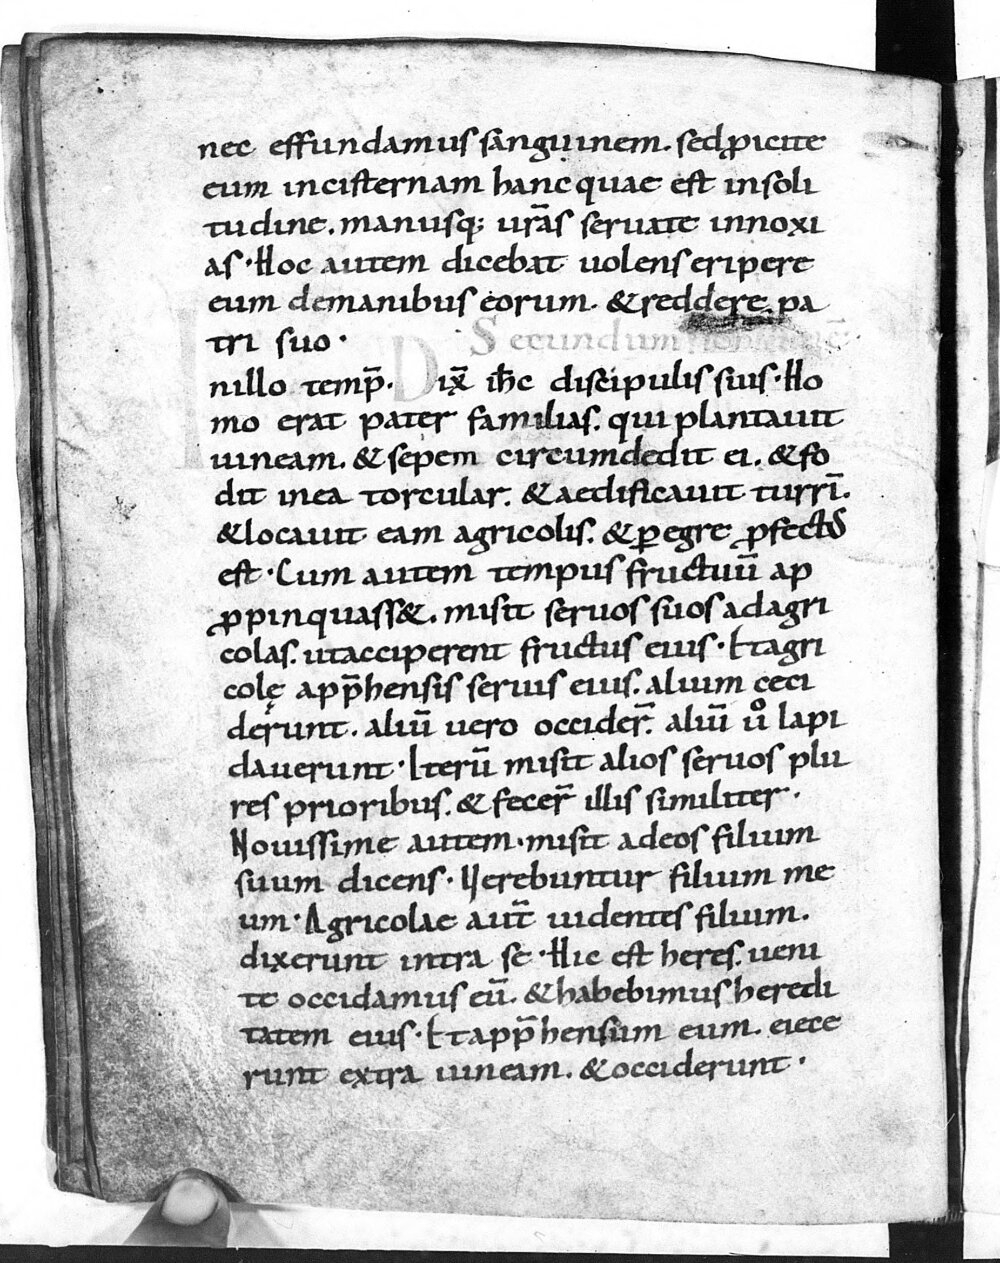 nec effundamus sanguinem. sed ꝓicite
eum incisternam hanc quae est insoli
tudine. manusq; ur̄as seruate innoxi
as · Hoc autem dicebat uolens eripere
eum demanibus eorum. & reddere pa
tri suo ·
Secundum
nillo temp̄. Dix̄ ih̄c discipulis suis · Ho
mo erat pater familias. qui plantauit
uineam. & sepem circumdedit ei. & fo
dit inea torcular. & aedificauit turrī.
& locauit eam agricolis. & ꝑegre ꝓfectus
est · Cum autem tempus fructuū ap
ꝓpinquass&. misit seruos suos adagri
colas. utacciperent fructus eius · Etagri
colę app̄hensis seruis eius. alium ceci
derunt. aliū uero occider̄. aliū ůº lapi
dauerunt · Iterū misit alios seruos plu
res prioribus. & fecer̄ illis similiter ·
Nouissime autem · misit adeos filium
suum dicens · Uerebuntur filium me
um · Agricolae aut̄ uidentes filium.
dixerunt intra se · Hic est heres. ueni
te occidamus eū. & habebimus heredi
tatem eius · Etapp̄hensum eum. eiece
runt extra uineam. & occiderunt ·